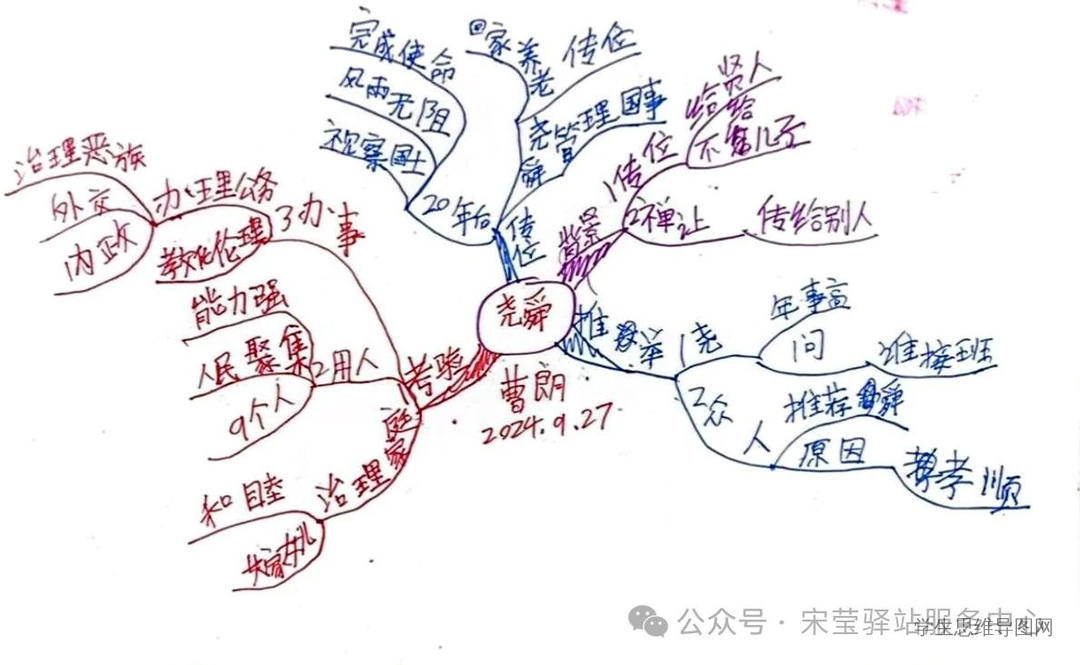 尧舜
曹朗
2024.9.27
背景
1传位
给贤人
不给儿子
2禅让
传给别人
推举
1尧
年事高
问
谁接班
2众人
推荐舜
原因
孝顺
考验
治理家庭
和睦
2用人
能力强
人民聚集
9个人
3办事
教化伦理
办理公务
治理恶族
外交
内政
传位
20年后
完成使命
风雨无阻
视察国土
舜管理国事
尧
回家养老
传位
公众号·宋莹驿站服务中心
学生思维导图网